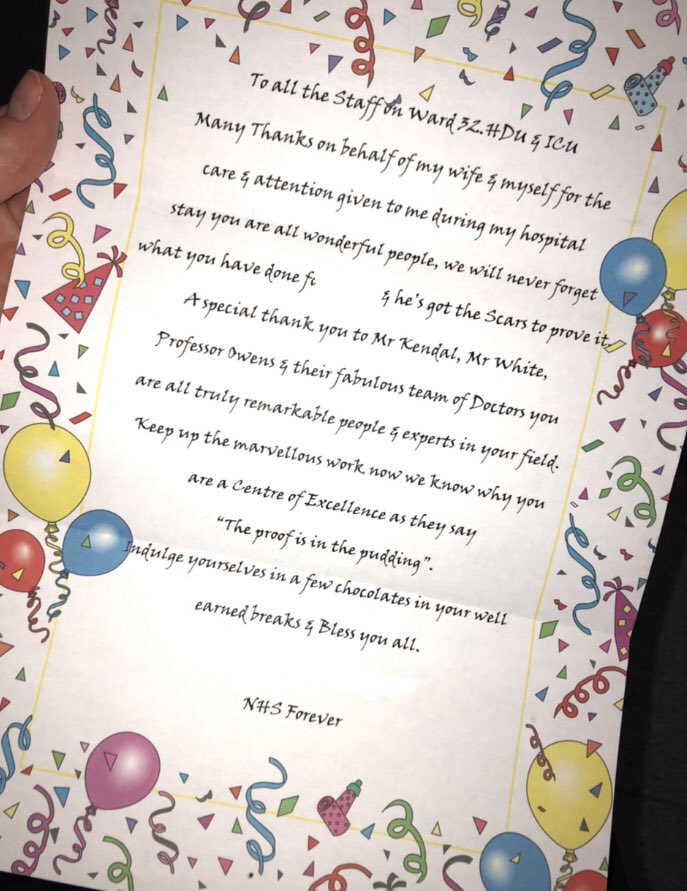 To all the Staff on Ward 32.HDU & ICU
Many Thanks on behalf of my wife & myself for the
care & attention given to me during my hospital
stay you are all wonderful people, we will never forget
what you have done & he's got the Scars to prove it.
A special thank you to Mr Kendal, Mr White,
Professor Owens & their fabulous team of Doctors you
are all truly remarkable people & experts in your field.
Keep up the marvellous work now we know why you
are a Centre of Excellence as they say
"The proof is in the pudding".
Indulge yourselves in a few chocolates in your well
earned breaks & Bless you all.
NHS Forever